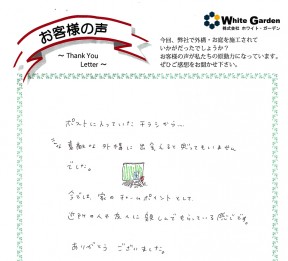 お客様の声
~ Thank You
Letter ~
White Garden
株式会社 ホワイト・ガーデン
今回、弊社で外構・お庭を施工されて
いかがだったでしょうか?
お客様の声が私たちの原動力になっています。
ぜひご感想をお聞かせ下さい。
ポストに入っていたチラシから…
こんな素敵な外構に出会えるとは思ってもいません
でした。
今では、家のチャームポイントとして、
近所の人や友人に親しんでもらっている感じです。
ありがとうございました。